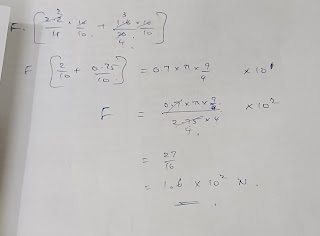 F. [ 2.2/11 · 10/10 + 3/4 · 10/10 ]
F [ 2/10 + 0.75/10 ] = 0.7 × π × 9/4 × 10
F = 0.7 × π × 9/4 / 2.75 × 4 × 10²
= 27/16
= 1.6 × 10² N.